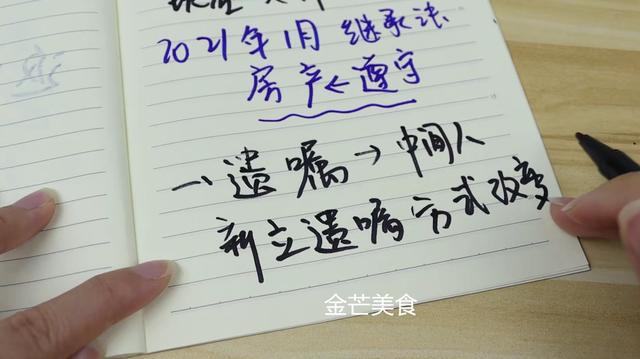 2021年1月 继承法
房产←遵守
一遗嘱→中间人
新立遗嘱方式改变
金芒美食